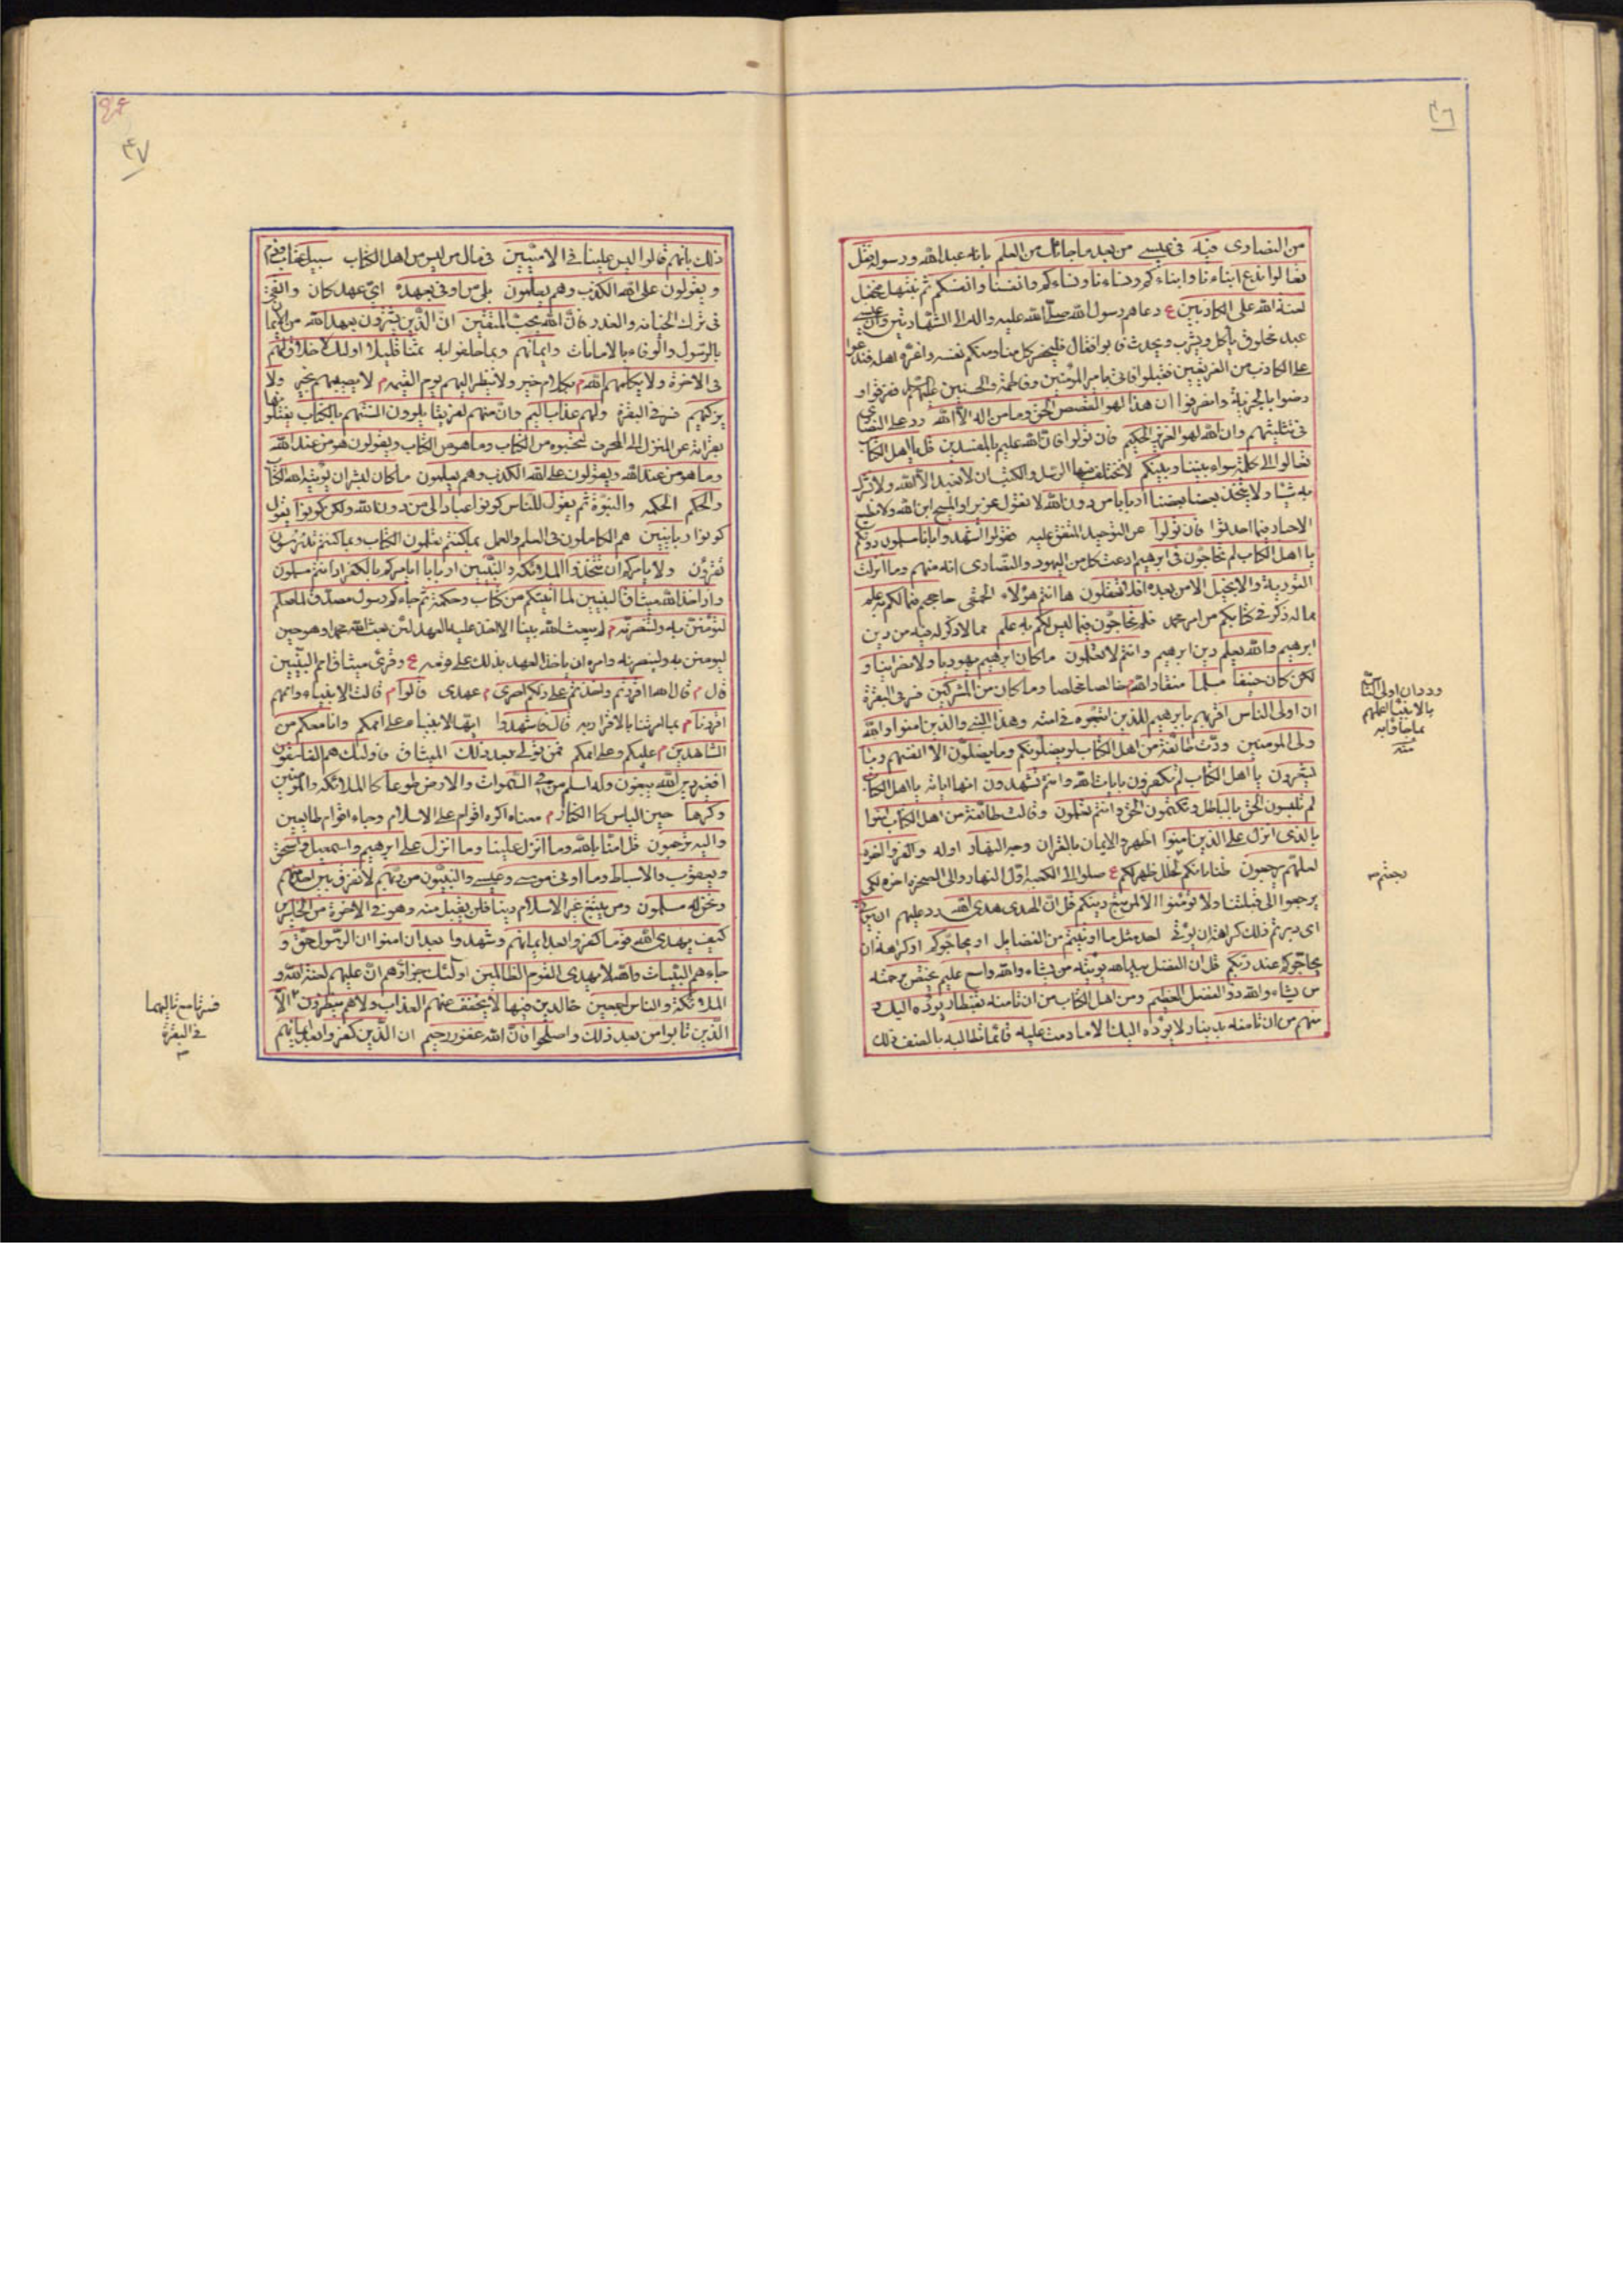 ٤٦
من النصارى فيه في عيسى من بعد ما جاءك من العلم بانه عبد الله ورسوله فقل
تعالوا ندع ابناءنا وابناءكم ونساءنا ونساءكم وانفسنا وانفسكم ثم نبتهل فنجعل
لعنة الله على الكاذبين ع دعاهم رسول الله صلى الله عليه واله الى الشهادتين وان عيسى
عبد مخلوق ياكل ويشرب ويحدث فابوا فقال فليحضر كل منا ومنكم نفسه واعزة اهله فندعوا
على الكاذب من الفريقين فقبلوا فاتى بامير المؤمنين وفاطمة والحسنين عليهم السلم ففرقوا و
رضوا بالجزية وانصرفوا ان هذا لهو القصص الحق وما من اله الا الله رد على النصارى
في تثليثهم وان الله لهو العزيز الحكيم فان تولوا فان الله عليم بالمفسدين قل يا اهل الكتاب
تعالوا الى كلمة سواء بيننا وبينكم لا تختلف فيها الرسل والكتب ان لا نعبد الا الله ولا نشرك
به شيئا ولا يتخذ بعضنا بعضا اربابا من دون الله لا نقول عزير او المسيح ابن الله ولا نطيع
الاحبار فيما احدثوا فان تولوا عن التوحيد المتفق عليه فقولوا اشهدوا بانا مسلمون دونكم
يا اهل الكتاب لم تحاجون في ابرهيم ادعت كل من اليهود والنصارى انه منهم وما انزلت
التورية والانجيل الا من بعده افلا تعقلون ها انتم هؤلاء الحمقى حاججتم فيما لكم به علم
مما له ذكر في كتابكم من امر محمد فلم تحاجون فيما ليس لكم به علم مما لا ذكر له فيه من دين
ابرهيم والله يعلم دين ابرهيم وانتم لا تعلمون ما كان ابرهيم يهوديا ولا نصرانيا و
لكن كان حنيفا مسلما منقادا لله خالصا مخلصا وما كان من المشركين فسر في البقرة
ان اولى الناس اقربهم بابرهيم للذين اتبعوه في امته وهذا النبي والذين امنوا والله
ولي المؤمنين ودت طائفة من اهل الكتاب لو يضلونكم وما يضلون الا انفسهم وما
يشعرون يا اهل الكتاب لم تكفرون بايات الله وانتم تشهدون انها اياته يا اهل الكتاب
لم تلبسون الحق بالباطل وتكتمون الحق وانتم تعلمون وقالت طائفة من اهل الكتاب امنوا
بالذي انزل على الذين امنوا اظهروا الايمان بالقران وجه النهار اوله واكفروا اخره
لعلهم يرجعون ظنا بانكم لخلل ظهر لكم ع صلوا الى الكعبة اول النهار والى الصخرة اخره لكي
يرجعوا الى قبلتنا ولا تؤمنوا الا لمن تبع دينكم قل ان الهدى هدى الله رد عليهم ان يؤتى
اي دبرتم ذلك كراهة ان يؤتى احد مثل ما اوتيتم من الفضايل او يحاجوكم او كراهة ان
يحاجوكم عند ربكم قل ان الفضل بيد الله يؤتيه من يشاء والله واسع عليم يختص برحمته
من يشاء والله ذو الفضل العظيم ومن اهل الكتاب من ان تامنه بقنطار يؤده اليك و
منهم من ان تامنه بدينار لا يؤده اليك الا ما دمت عليه قائما تطالبه بالعنف ذلك
وددان اولى الناس
بالانبيا اعلمهم
بما جاؤا به
منه
٤٧
ذلك بانهم قالوا ليس علينا في الاميين في مال من ليس من اهل الكتاب سبيل عتاب وذم
ويقولون على الله الكذب وهم يعلمون بلى من اوفى بعهده اي عهد كان واتقى
في ترك الخيانة والغدر فان الله يحب المتقين ان الذين يشترون بعهد الله من الايمان
بالرسول والوفاء بالامانات وايمانهم وبما حلفوا به ثمنا قليلا اولئك لا خلاق لهم
في الاخرة ولا يكلمهم الله م بكلام خير ولا ينظر اليهم يوم القيمة م لا يصيبهم بخير ولا
يزكيهم فسر في البقرة ولهم عذاب اليم وان منهم لفريقا يلون السنتهم بالكتاب يفتلونها
بقرائته عن المنزل الى المحرف لتحسبوه من الكتاب وما هو من الكتاب ويقولون هو من عند الله
وما هو من عند الله ويقولون على الله الكذب وهم يعلمون ما كان لبشر ان يؤتيه الله الكتاب
والحكم الحكمة والنبوة ثم يقول للناس كونوا عبادا لي من دون الله ولكن كونوا يقول
كونوا ربانيين هم الكاملون في العلم والعمل بما كنتم تعلمون الكتاب وبما كنتم تدرسون
تقرؤن ولا يامركم ان تتخذوا الملائكة والنبيين اربابا ايامركم بالكفر اذ انتم مسلمون
واذ اخذ الله ميثاق النبيين لما اتيتكم من كتاب وحكمة ثم جاءكم رسول مصدق لما معكم
لتؤمنن به ولتنصرنه م لم يبعث الله نبيا الا اخذ عليه العهد لئن بعث الله محمدا وهو حي
ليومنن به ولينصرنه وامره ان ياخذ العهد بذلك على قومه ع وقرئ ميثاق امم النبيين
قال م قال الله ااقررتم واخذتم على ذلكم اصري م عهدي قالوا م قالت الانبياء واممهم
اقررنا م بما امرتنا بالاقرار به قال فاشهدوا ايها الانبياء على اممكم وانا معكم من
الشاهدين م عليكم وعلى اممكم فمن تولى بعد ذلك الميثاق فاولئك هم الفاسقون
افغير دين الله يبغون وله اسلم من في السموات والارض طوعا كالملائكة والمؤمنين
وكرها حين الباس كالكفار م معناه اكره اقوام على الاسلام وجاء اقوام طايعين
واليه ترجعون قل امنا بالله وما انزل علينا وما انزل على ابرهيم واسمعيل واسحق
ويعقوب والاسباط وما اوتي موسى وعيسى والنبيون من ربهم لا نفرق بين احد منهم
ونحن له مسلمون ومن يبتغ غير الاسلام دينا فلن يقبل منه وهو في الاخرة من الخاسرين
كيف يهدي الله قوما كفروا بعد ايمانهم وشهدوا بعد ان امنوا ان الرسول حق و
جاءهم البينات والله لا يهدي القوم الظالمين اولئك جزاؤهم ان عليهم لعنة الله و
الملائكة والناس اجمعين خالدين فيها لا يخفف عنهم العذاب ولا هم ينظرون الا
الذين تابوا من بعد ذلك واصلحوا فان الله غفور رحيم ان الذين كفروا بعد ايمانهم
فسرتا مع تاليهما
في البقرة